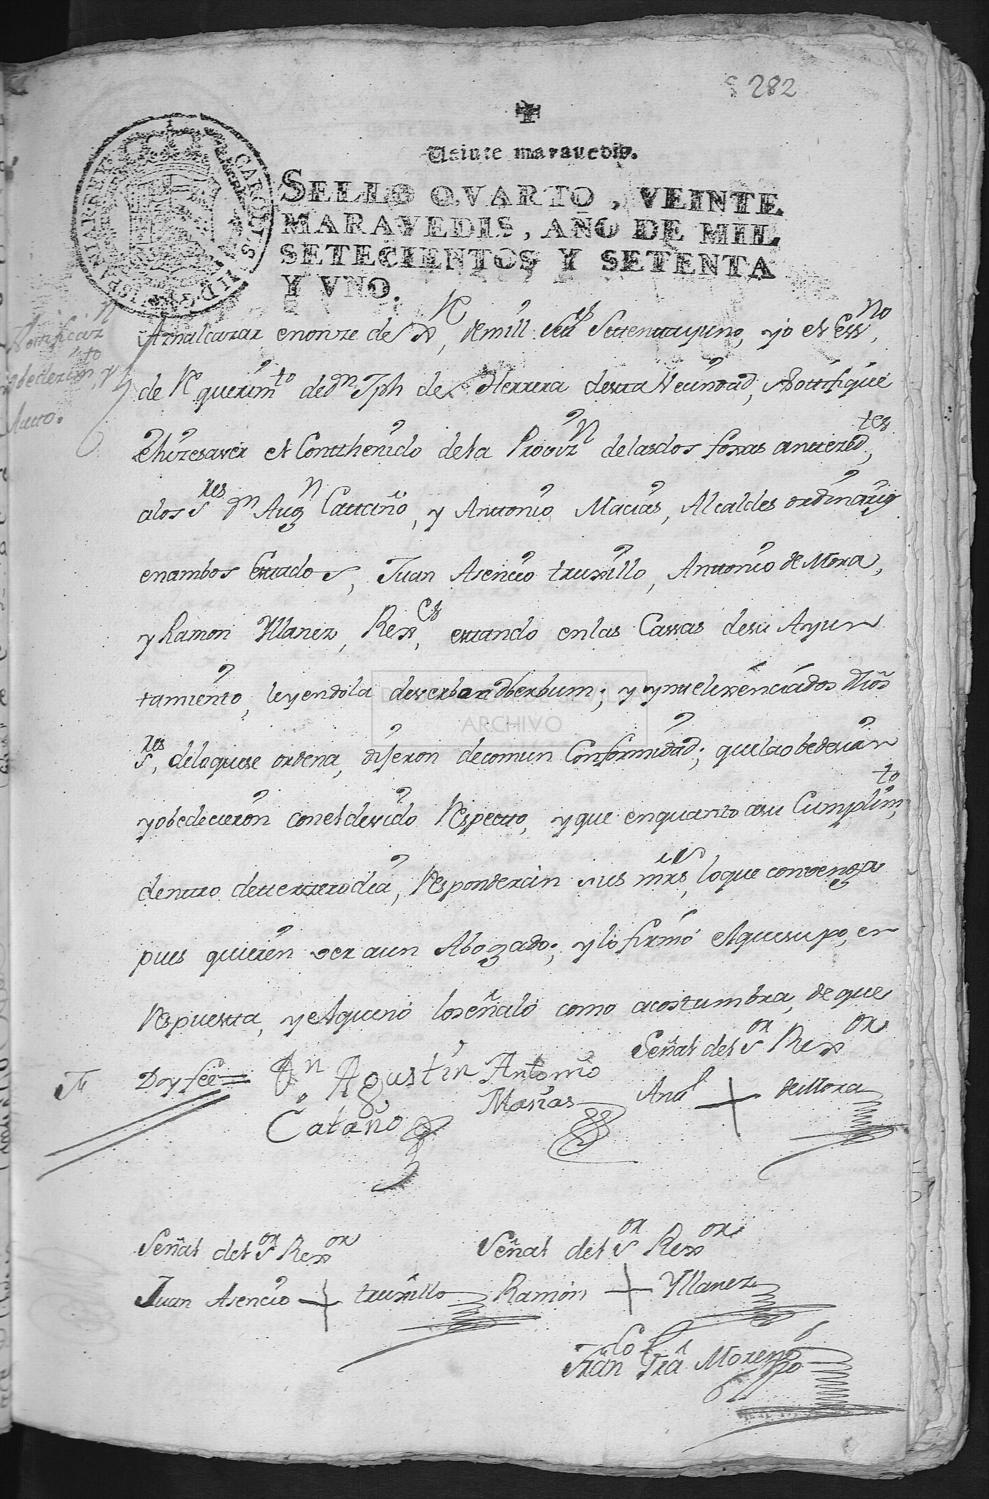 282
Veinte maravedis.
SELLO QVARTO, VEINTE
MARAVEDIS, AÑO DE MIL
SETECIENTOS Y SETENTA
Y VNO.
CAROLUS III D. G. HISPANIAR. REX
Aznalcazar en onze de, de mill, Setts Settenta y uno, yo el Essno,
de Requerimto de Dn Jph de Herrera desta Vecindad, Nottifiqué
e hize saver el Conthenido de la Provizn de las dos foxas anteced,tes
a los Sres Dn Augn Cattaño, y Anttonio Macias, Alcaldes ordinarios
en ambos Esttados, Juan Asencio truxillo, Anttonio de Mora,
y Ramon Yllanez, Rexes, estando en las Cassas de su Ayun
tamiento, leyendola de verbo ad berbum; y ynteligenciados dhos
Sres, de lo que se ordena, dijeron de comun Conformidad; que la obedecian
y obedecieron con el devido Respecto, y que en quanto a su Cumplimto,
dentro de tercero dia, Responderàn sus mrds, lo que convenga
pues quieren ver a un Abogado; y lo firmó el que supo, en
Respuesta, y el que no lo señaló como acostumbra, de que
Doy fee=
Dn Agustin
Cataño
Antonio
Masias
Señal del Sor Rexor
Antto + de Mora
Señal del Sor Rexor
Juan Asencio + truxillo
Señal del Sor Rexor
Ramón + Yllanez
Franco Moreno
ARCHIVO